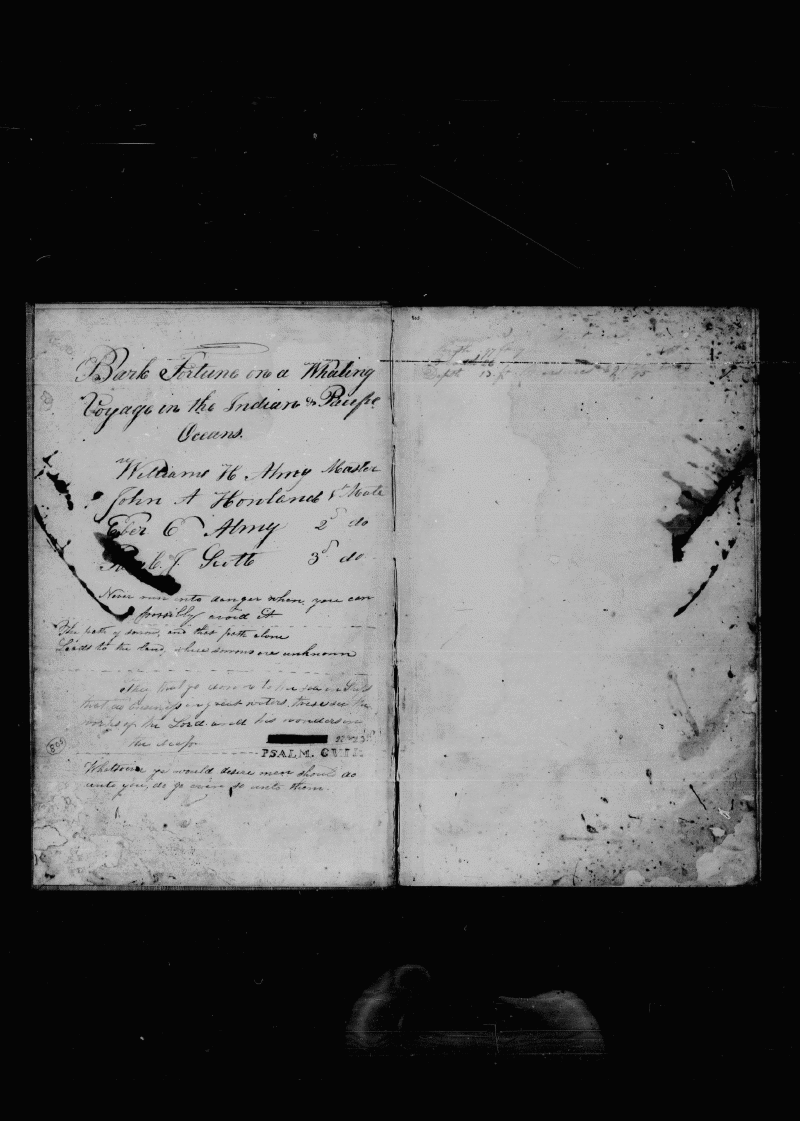 Bark Fortune on a Whaling
Voyage in the Indian & Pacific
Oceans.
William H Almy Master
John A Howland 1st Mate
E C Almy 2d do
J. Scott 3d do
Never run into danger when you can
possibly avoid it
The path of sorrow, and that path alone
Leads to the land, where sorrows are unknown
They that go down to the sea in Ships
that do business in great waters, these see the
works of the Lord and his wonders in
the deep
PSALM. CVII.
Whatsoever ye would desire men should do
unto you, do ye even so unto them.
Sept 13